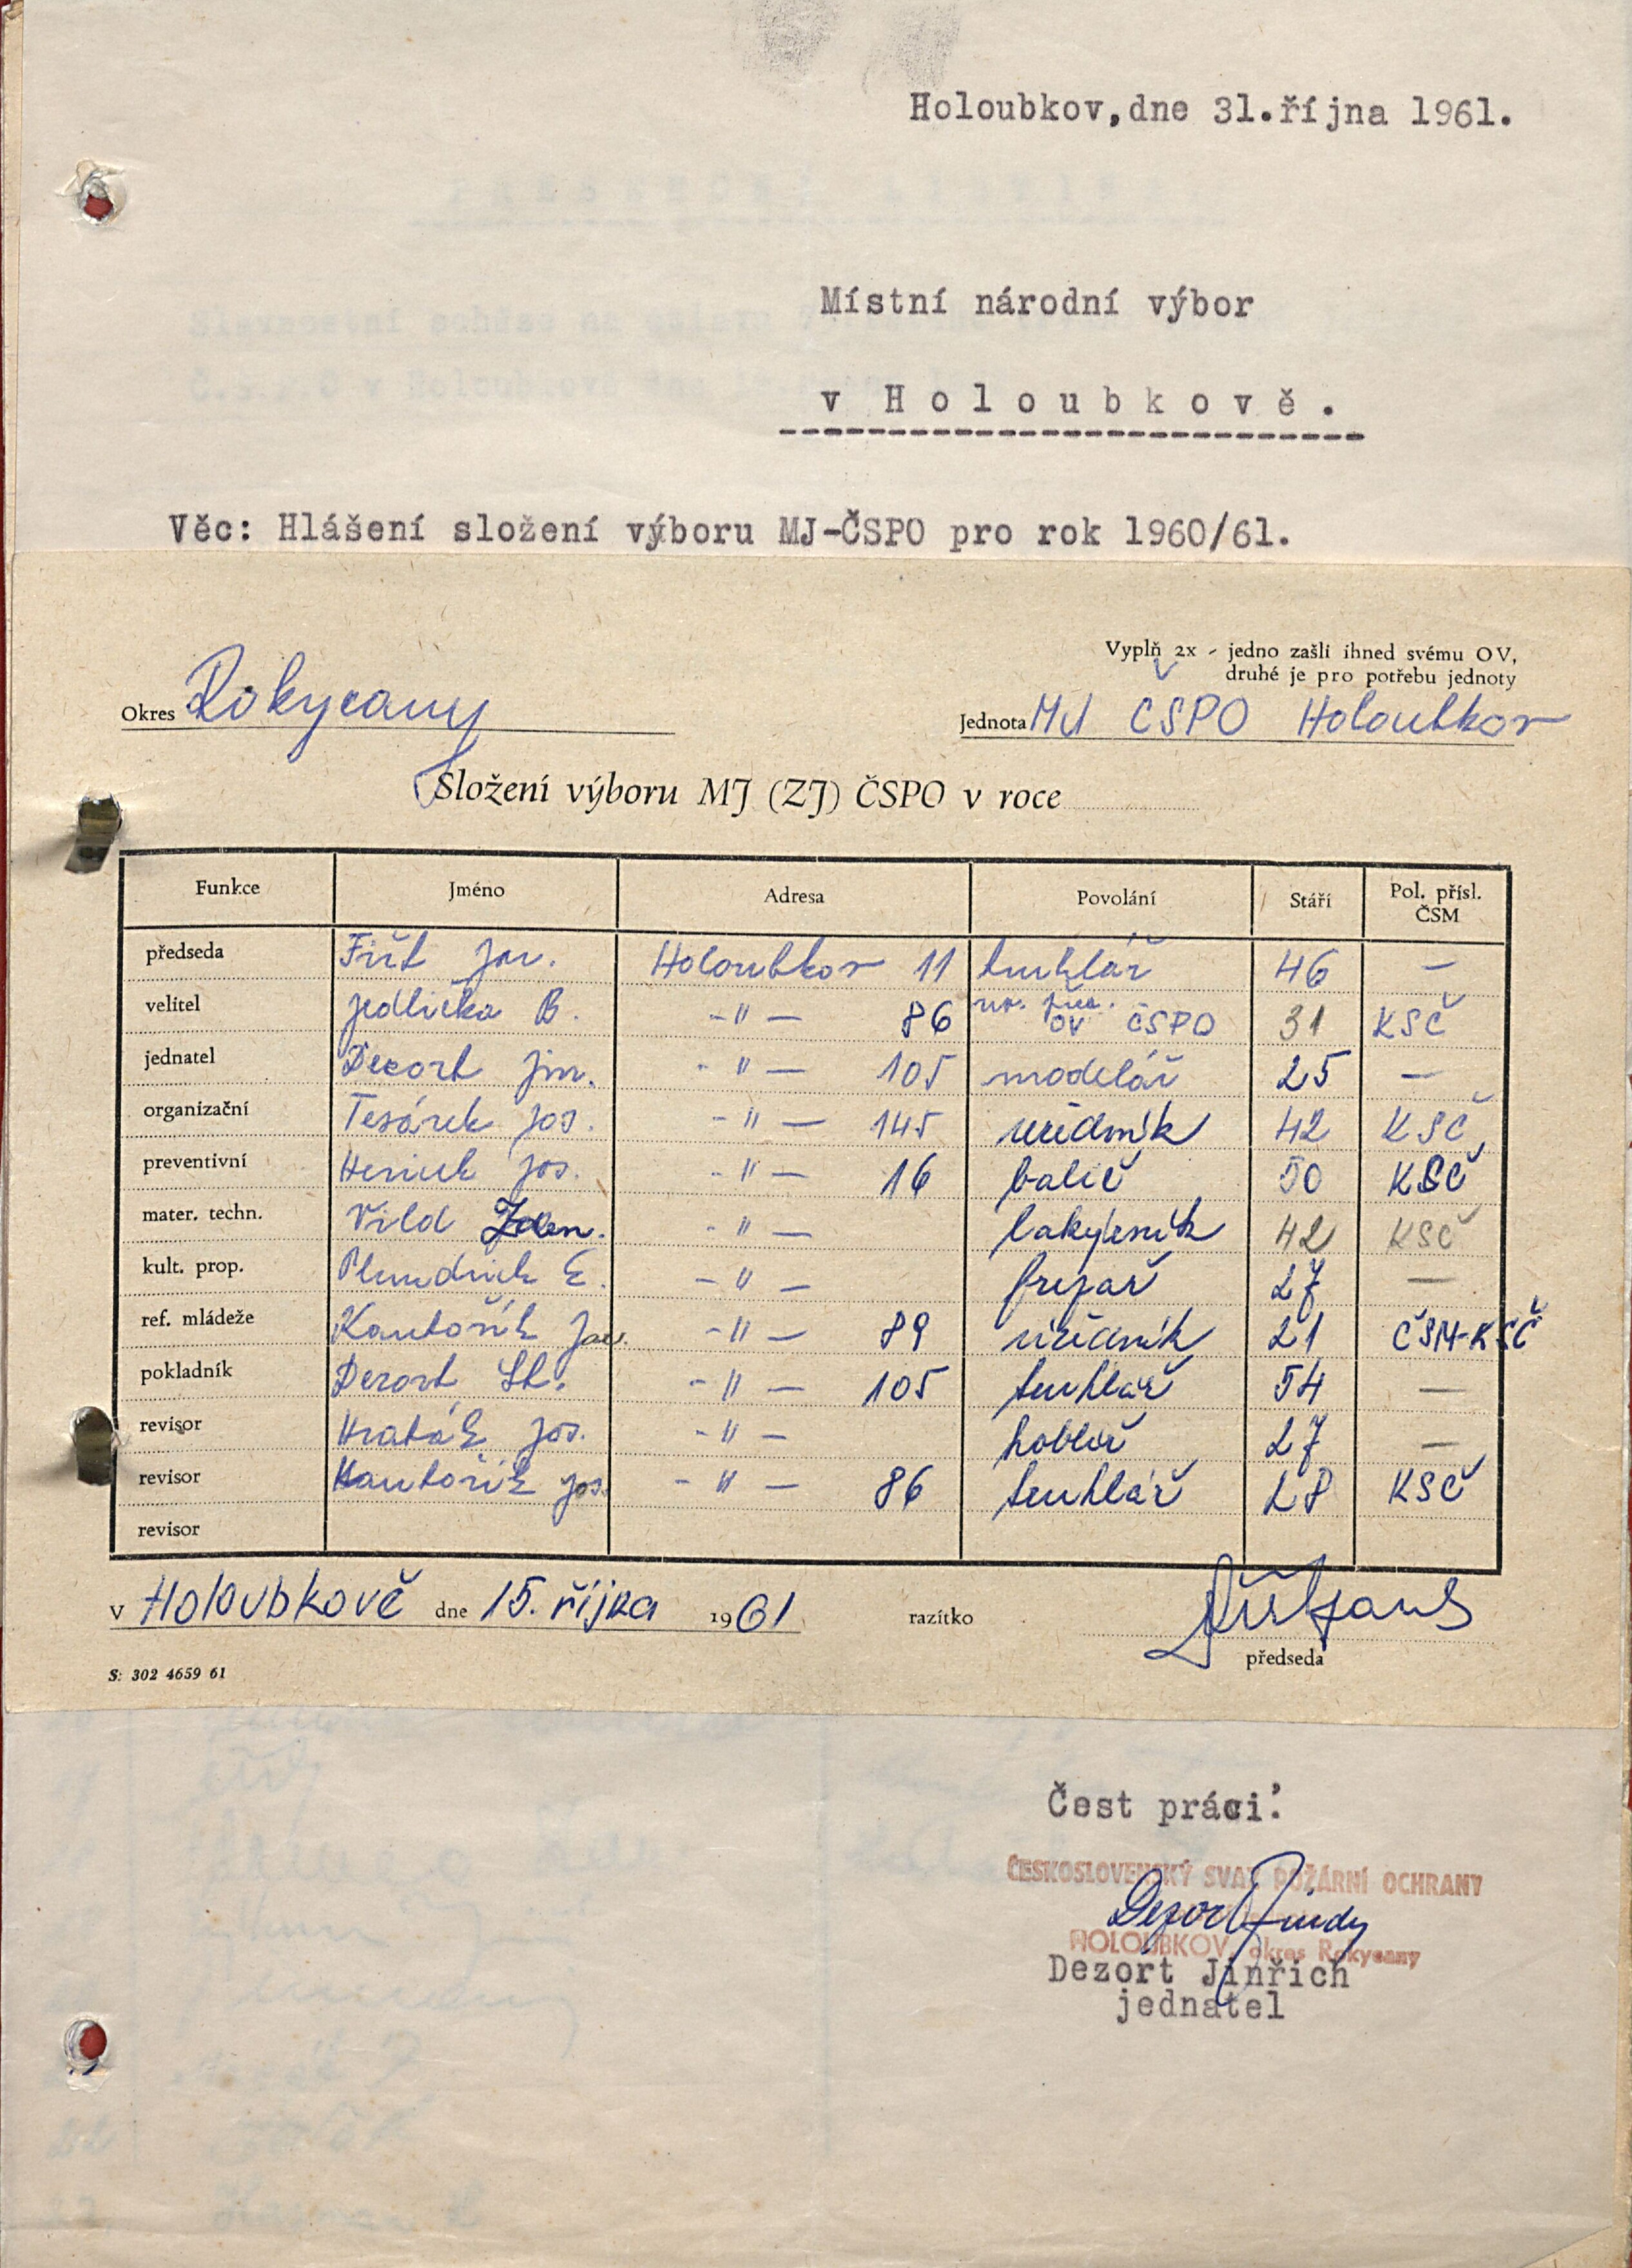 Holoubkov, dne 31. října 1961.
Místní národní výbor
v Holoubkově.
Věc: Hlášení složení výboru MJ-ČSPO pro rok 1960/61.
Vyplň 2x - jedno zašli ihned svému OV,
druhé je pro potřebu jednoty
Okres Rokycany
Jednota MJ ČSPO Holoubkov
Složení výboru MJ (ZJ) ČSPO v roce
Funkce Jméno Adresa Povolání Stáří Pol. přísl. ČSM
předseda Fišt Jan. Holoubkov 11 truhlář 46 —
velitel Jedlička B. -"- 86 OV ČSPO 31 KSČ
jednatel Dezort Jin. -"- 105 modelář 25 —
organizační Tesárek Jos. -"- 145 úředník 42 KSČ
preventivní Jos. -"- 16 balič 50 KSČ
mater. techn. Vild Zden. -"- lakýrník 42 KSČ
kult. prop. E. -"- frézař 27 —
ref. mládeže Kantořík Jar. -"- 89 úředník 21 ČSM-KSČ
pokladník Dezort -"- 105 truhlář 54 —
revisor Hrabák Jos. -"- 27 —
revisor Kantořík Jos. -"- 86 truhlář 28 KSČ
revisor
v Holoubkově dne 15. říjka 1961 razítko
předseda
S: 302 4659 61
Čest práci!
ČESKOSLOVENSKÝ SVAZ POŽÁRNÍ OCHRANY
Dezort Jindř
HOLOUBKOV, okres Rokycany
Dezort Jinřich
jednatel